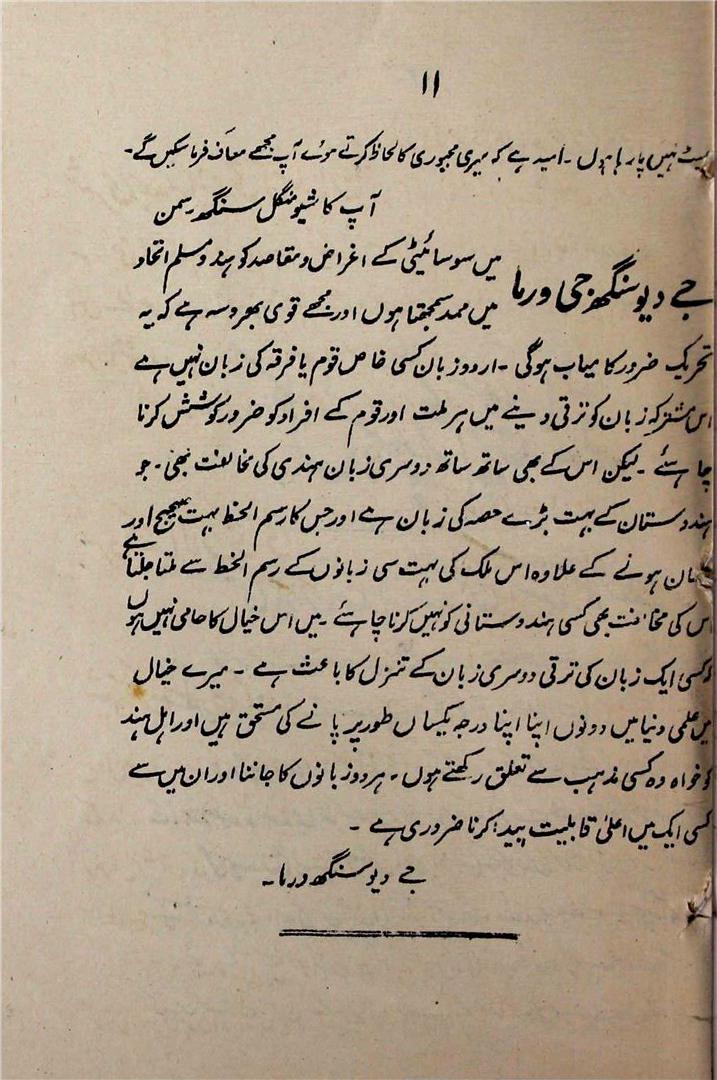 ۱۱
سمیٹ نہیں پا رہا ہوں ۔ امید ہے کہ میری مجبوری کا لحاظ کرتے ہوئے آپ مجھے معاف فرما سکیں گے۔
آپ کا شیو منگل سنگھ سمن
جے دیو سنگھ جی ورما
میں سوسائیٹی کے اغراض و مقاصد کو ہندو مسلم اتحاد
میں ممد سمجھتا ہوں اور مجھے قوی بھروسہ ہے کہ یہ
تحریک ضرور کامیاب ہوگی ۔ اردو زبان کسی خاص قوم یا فرقہ کی زبان نہیں ہے
اس مشترکہ زبان کو ترقی دینے میں ہر ملت اور قوم کے افراد کو ضرور کوشش کرنا
چاہئے ۔ لیکن اس کے بھی ساتھ ساتھ دوسری زبان ہندی کی مخالفت بھی ۔ جو
ہندوستان کے بہت بڑے حصہ کی زبان ہے اور جس کا رسم الخط بہت صحیح اور
آسان ہونے کے علاوہ اس ملک کی بہت سی زبانوں کے رسم الخط سے ملتا جلتا ہے
اس کی مخالفت بھی کسی ہندوستانی کو نہیں کرنا چاہئے ۔ میں اس خیال کا حامی نہیں ہوں
کہ کسی ایک زبان کی ترقی دوسری زبان کے تنزل کا باعث ہے ۔ میرے خیال
میں علمی دنیا میں دونوں اپنا اپنا درجہ یکساں طور پر پانے کی مستحق ہیں اور اہل ہند
کو خواہ وہ کسی مذہب سے تعلق رکھتے ہوں ۔ ہر دو زبانوں کا جاننا اور ان میں سے
کسی ایک میں اعلیٰ قابلیت پیدا کرنا ضروری ہے ۔
جے دیو سنگھ ورما ۔